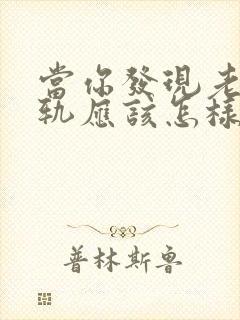 當你發現老
軌應該怎樣
普林斯魯